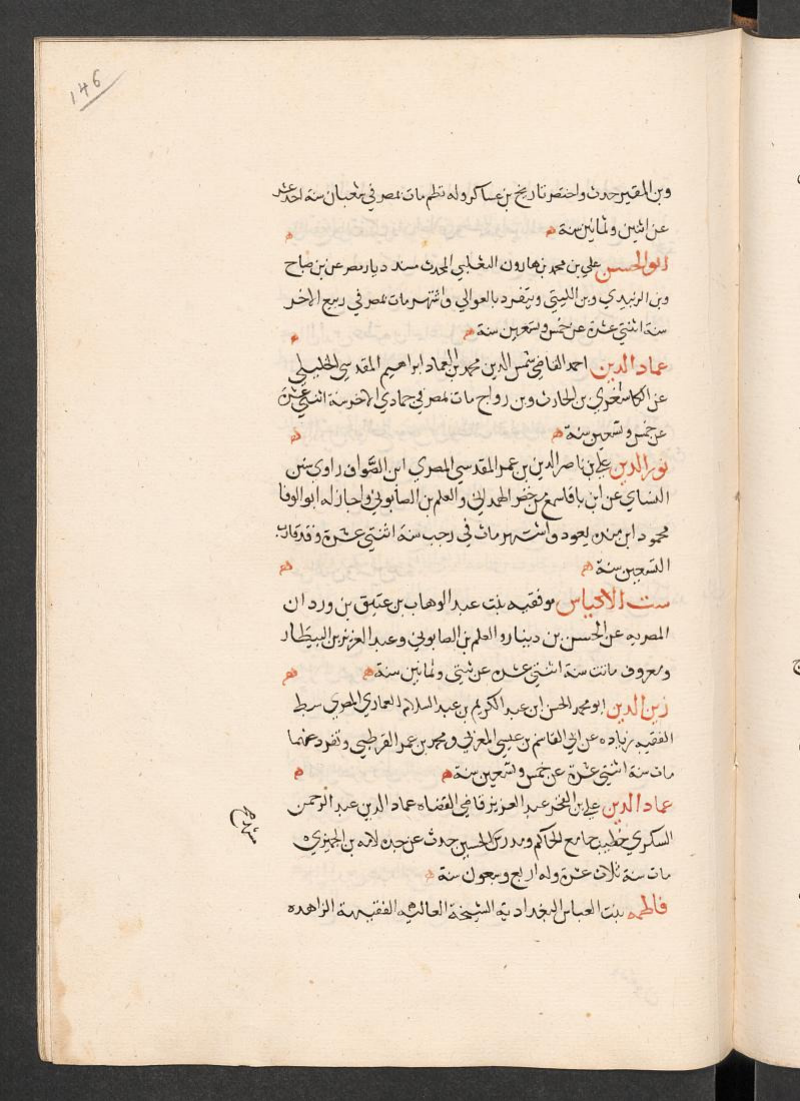 146
وبن المقير حدث واختصر تاريخ بن عساكر وله نظم مات بمصر في شعبان سنة احد عشر
عن اثنين وثمانين سنة ه
ابو الحسن علي بن محمد بن هارون التغلبي المحدث مسند ديار مصر عن بن صباح
وبن الزبيدي وبن الليتي وتفرد بالعوالي واشتهر مات بمصر في ربيع الاخر
سنة اثنتي عشرة عن خمس وتسعين سنة ه
عماد الدين احمد القاضي شمس الدين محمد بن العماد ابراهيم المقدسي الخليلي
عن الكاشغري بن الخازن وبن رواج مات بمصر في جمادي الاخر سنة اثنتي عشرة
عن خمس وتسعين سنة ه
نور الدين علي بن ناصر الدين بن عمر المقدسي المصري ابن الصواف راوي سنن
النساي عن ابن باقا سمع من جعفر الهمداني والعلم بن الصابوني واجاز له ابو الوفا
محمود ابن منده يعود واشتهر مات في رجب سنة اثنتي عشرة وقد قارب
التسعين سنة ه
ست الاجناس موفقيه بنت عبد الوهاب بن عتيق بن وردان
المصريه عن الحسن بن دينار والعلم بن الصابوني وعبد العزيز بن البيطار
ومعروف ماتت سنة اثنتي عشرة عن ثنتي وثمانين سنة ه
زين الدين ابو محمد الحسن ابن عبد الكريم بن عبد السلام العماري المصري سبط
الفقيه زياده عن ابي القاسم بن عيسي المغربي ومحمد بن عمر القرطبي وتفرد عنهما
مات سنة اثنتي عشرة عن خمس وتسعين سنة ه
عماد الدين علي بن الفخر عبد العزيز قاضي القضاه عماد الدين عبد الرحمن
السكري خطيب جامع الحاكم ومدرس الحسين حدث عن جده لامه بن الجميزي
مات سنة ثلاث عشرة وله اربع وسبعون سنة ه
فاطمه بنت العباس البغدادية الشيخة العالية الفقيهة الزاهده